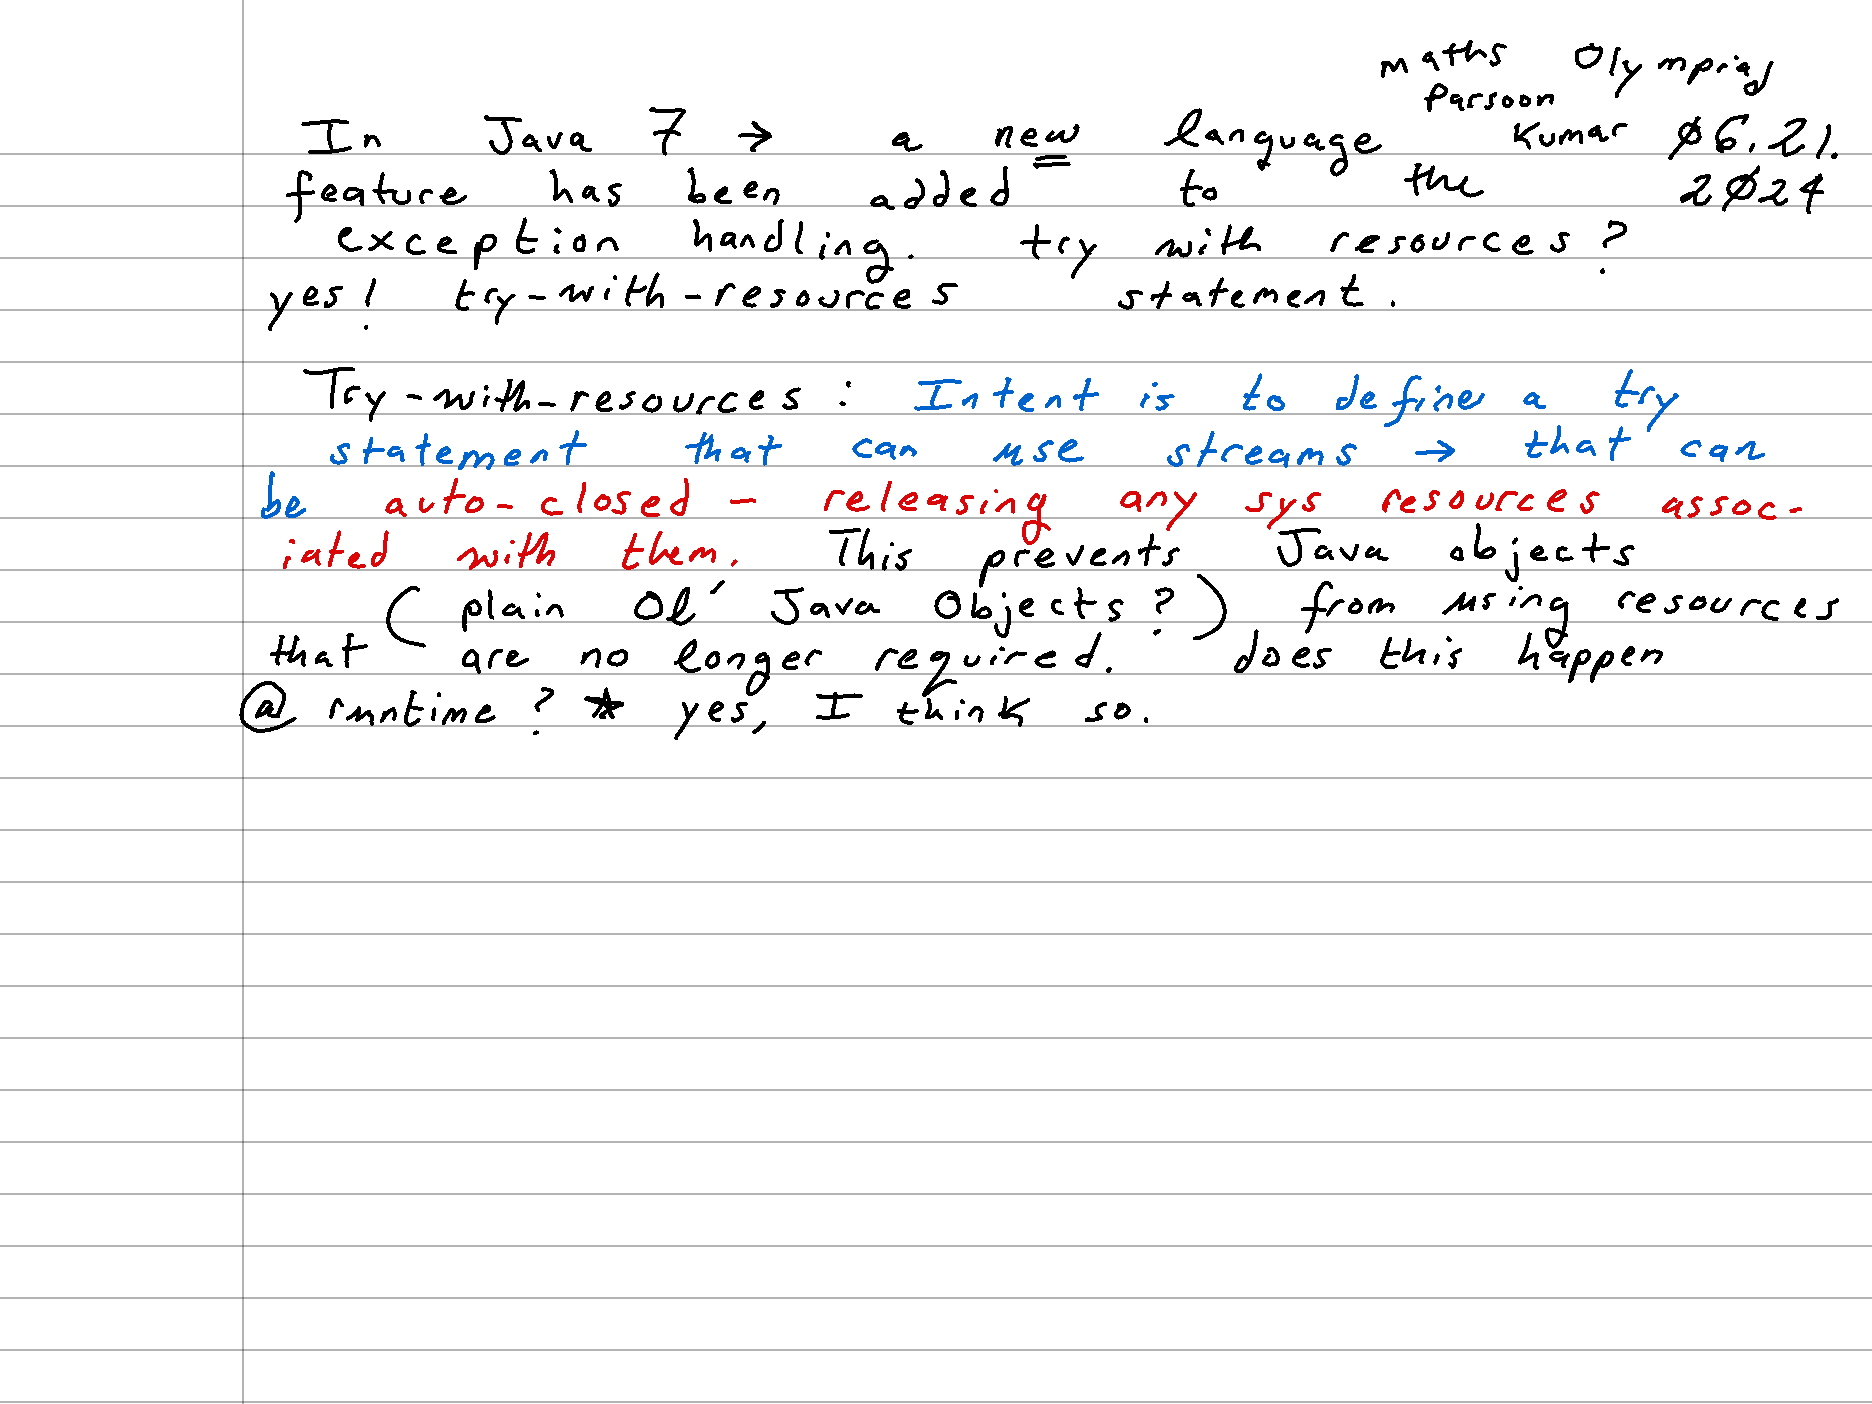 maths Olympiad
Parsoon
Kumar 06.21.
2024
In Java 7 → a new language
feature has been added to the
exception handling. try with resources?
yes! try-with-resources statement.
Try-with-resources: Intent is to define a try
statement that can use streams → that can
be auto-closed - releasing any sys resources assoc-
iated with them. This prevents Java objects
(plain Ol' Java Objects?) from using resources
that are no longer required. does this happen
@ runtime? * yes, I think so.